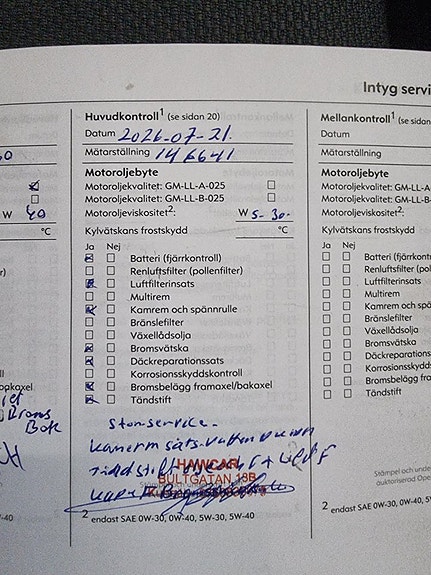 Intyg servi
Huvudkontroll1 (se sidan 20)
Datum 2026-07-21.
Mätarställning 146641
Motoroljebyte
Motoroljekvalitet: GM-LL-A-025
Motoroljekvalitet: GM-LL-B-025
Motoroljeviskositet2: W 5-30-
Kylvätskans frostskydd °C
Ja Nej
Batteri (fjärrkontroll)
Renluftsfilter (pollenfilter)
Luftfilterinsats
Multirem
Kamrem och spännrulle
Bränslefilter
Växellådsolja
Bromsvätska
Däckreparationssats
Korrosionsskyddskontroll
Bromsbelägg framaxel/bakaxel
Tändstift
Storservice-
HAWCAR
BULTGATAN 13B
2 endast SAE 0W-30, 0W-40, 5W-30, 5W-40
Mellankontroll1 (se sidan
Datum
Mätarställning
Motoroljebyte
Motoroljekvalitet: GM-LL-A
Motoroljekvalitet: GM-LL-B
Motoroljeviskositet2:
Kylvätskans frostskydd
Ja Nej
Batteri (fjärrkontroll)
Renluftsfilter (pollen
Luftfilterinsats
Multirem
Kamrem och spänn
Bränslefilter
Växellådsolja
Bromsvätska
Däckreparationssa
Korrosionsskydds
Bromsbelägg fram
Tändstift
Stämpel och under
auktoriserad Ope
2 endast SAE 0W-30, 0W-40, 5
W 40
°C
r)
opkaxel
W-40